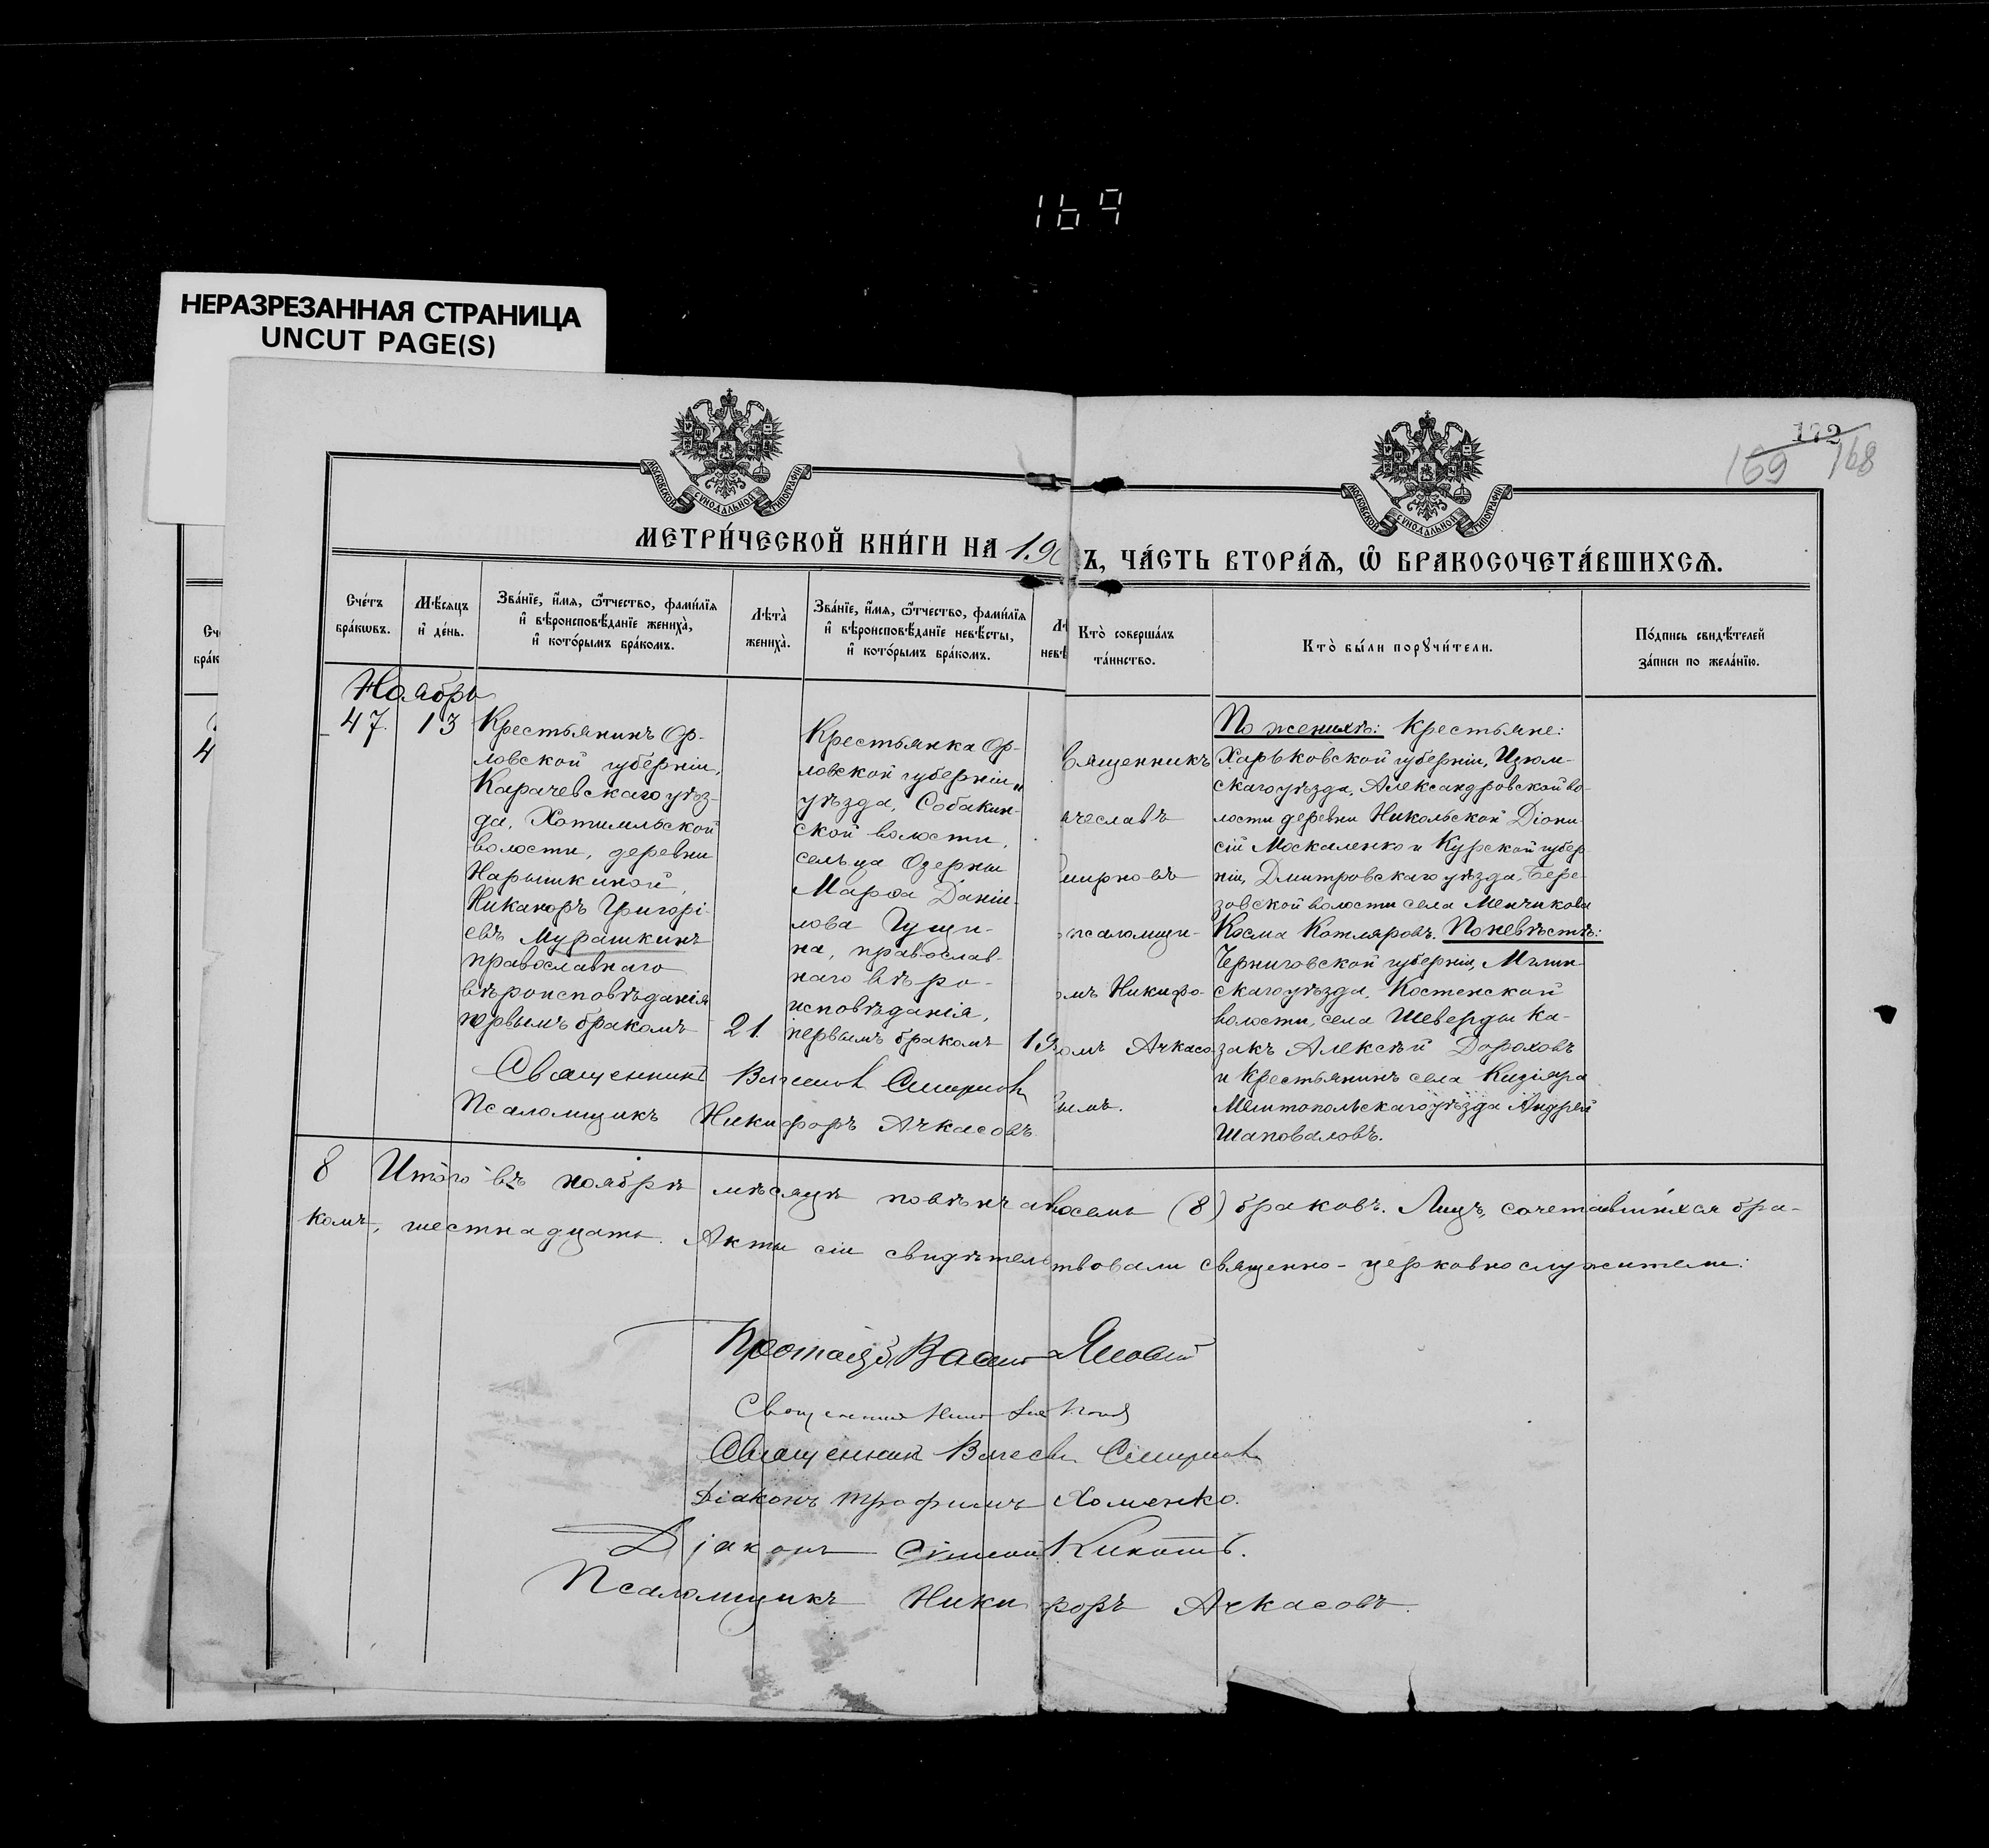 169
НЕРАЗРЕЗАННАЯ СТРАНИЦА
UNCUT PAGE(S)
172
169 168
МОСКОВСКОЙ СѴНОДАЛЬНОЙ ТИПОГРАФІИ
МОСКОВСКОЙ СѴНОДАЛЬНОЙ ТИПОГРАФІИ
МЕТРИ́ЧЕСКОЙ КНИ́ГИ НА 190
Ъ, ЧА́СТЬ ВТОРА́Я, Ѽ БРАКОСОЧЕТА́ВШИХСЯ.
Сче́тъ бра́кωвъ.
Мѣ́сяцъ и҆ де́нь.
Зва́нїе, и҆́мя, ѻ҆́тчество, фами́лїя и҆ вѣроисповѣ́данїе жениха̀, и҆ кото́рымъ бра́комъ.
Лѣта̀ жениха̀.
Зва́нїе, и҆́мя, ѻ҆́тчество, фами́лїя и҆ вѣроисповѣ́данїе невѣ́сты, и҆ кото́рымъ бра́комъ.
Лѣ
невѣ
Кто̀ соверша́лъ та́инство.
Кто̀ бы́ли порꙋчи́тели.
По́дпись свидѣ́телей за́писи по жела́нїю.
Сч
бра́к
4
Ноябрь
47. 13
Крестьянинъ Ор-
ловской губерніи,
Карачевскаго уѣз-
да, Хотимльской
волости, деревни
Нарышкиной,
Никаноръ Григорі-
евъ Мурашкинъ
православнаго
вѣроисповѣданія
первымъ бракомъ
21.
Крестьянка Ор-
ловской губерніи „
уѣзда, Собакин-
ской волости,
сельца Озерны
Марѳа Даніи-
лова Гущи-
на, православ-
наго вѣро-
исповѣданія,
первымъ бракомъ
19
вященникъ
ячеславъ
мирновъ
псаломщи-
омъ Никифо-
омъ Ачкасо
вымъ.
По женихѣ: Крестьяне:
Харьковской губерніи, Изюм-
скаго уѣзда, Александровской во-
лости деревни Никольской Діони-
сій Москаленко и Курской губер-
ніи, Дмитровскаго уѣзда, Бере-
зовской волости села Менчикова
Косма Котляровъ. По невѣстѣ:
Черниговской губерніи, Мглин-
скаго уѣзда, Костенской
волости, села Шеверды ка-
закъ Алексѣй Дороховъ
и крестьянинъ села Кизіяра
Мелитопольскаго уѣзда Андрей
Шаповаловъ.
Священникъ Вячеслав Смирновъ
Псаломщикъ Никифоръ Ачкасовъ.
8 Итого въ ноябрѣ мѣсяцѣ повѣнчано
восемь (8) браковъ. Лицъ, сочетавшихся бра-
комъ, шестнадцать. Акты сіи свидѣтель
ствовали священно-церковнослужители:
Священник Вячеслав Смирновъ
Діаконъ Трофимъ Хоменко.
Діаконъ
Псаломщикъ Никифоръ Ачкасовъ.